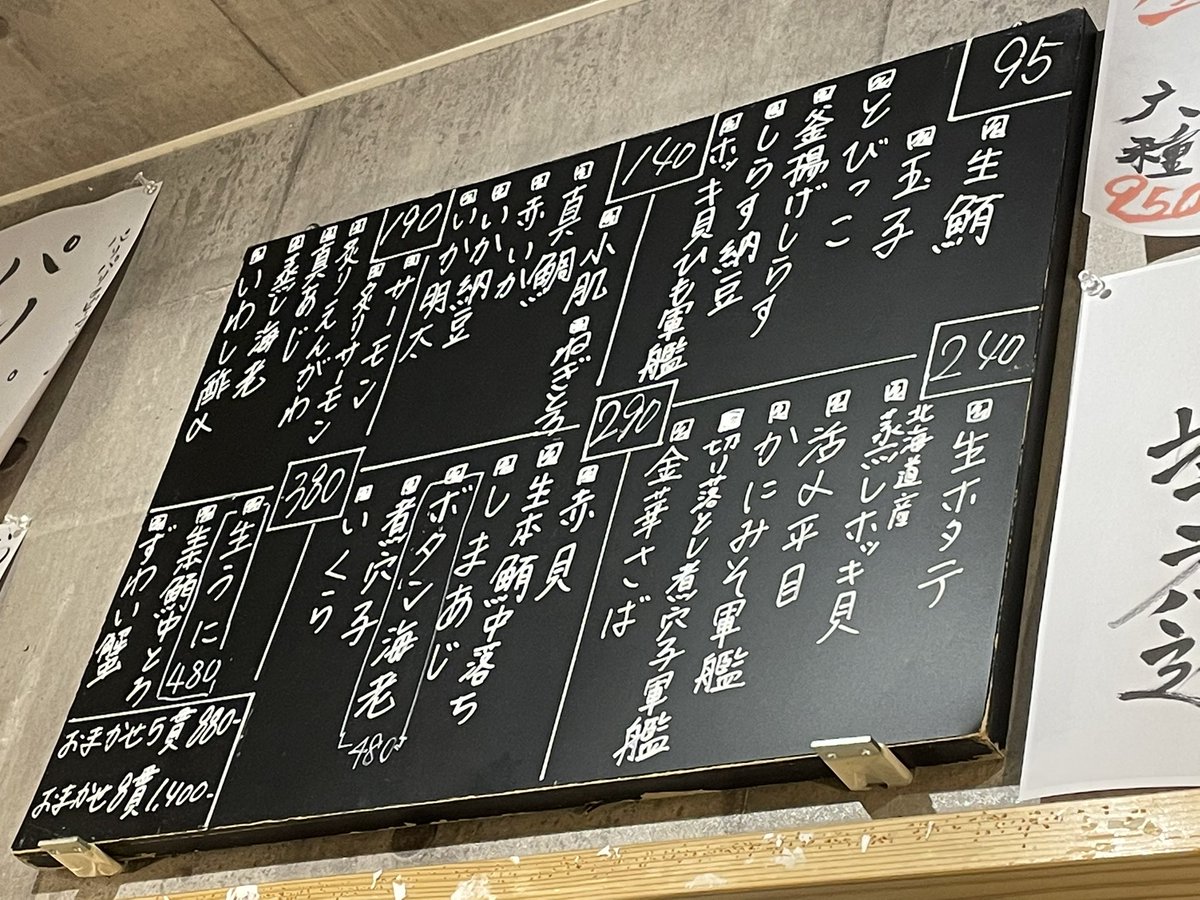 95
生鮪
玉子
とびっこ
釜揚げしらす
しらす納豆
ホッキ貝ひも軍艦
140
小肌
ねぎとろ
真鯛
赤いか
いか納豆
いか明太
190
サーモン
炙りサーモン
炙りえんがわ
真あじ
蒸し海老
いわし酢〆
240
生ホタテ
北海道産
蒸しホッキ貝
活〆平目
かにみそ軍艦
切り落とし煮穴子軍艦
金華さば
290
赤貝
生本鮪中落ち
しまあじ
ボタン海老
480
煮穴子
いくら
380
生うに
480
生本鮪中とろ
ずわい蟹
おまかせ5貫880-
おまかせ8貫1,400-
六種
950